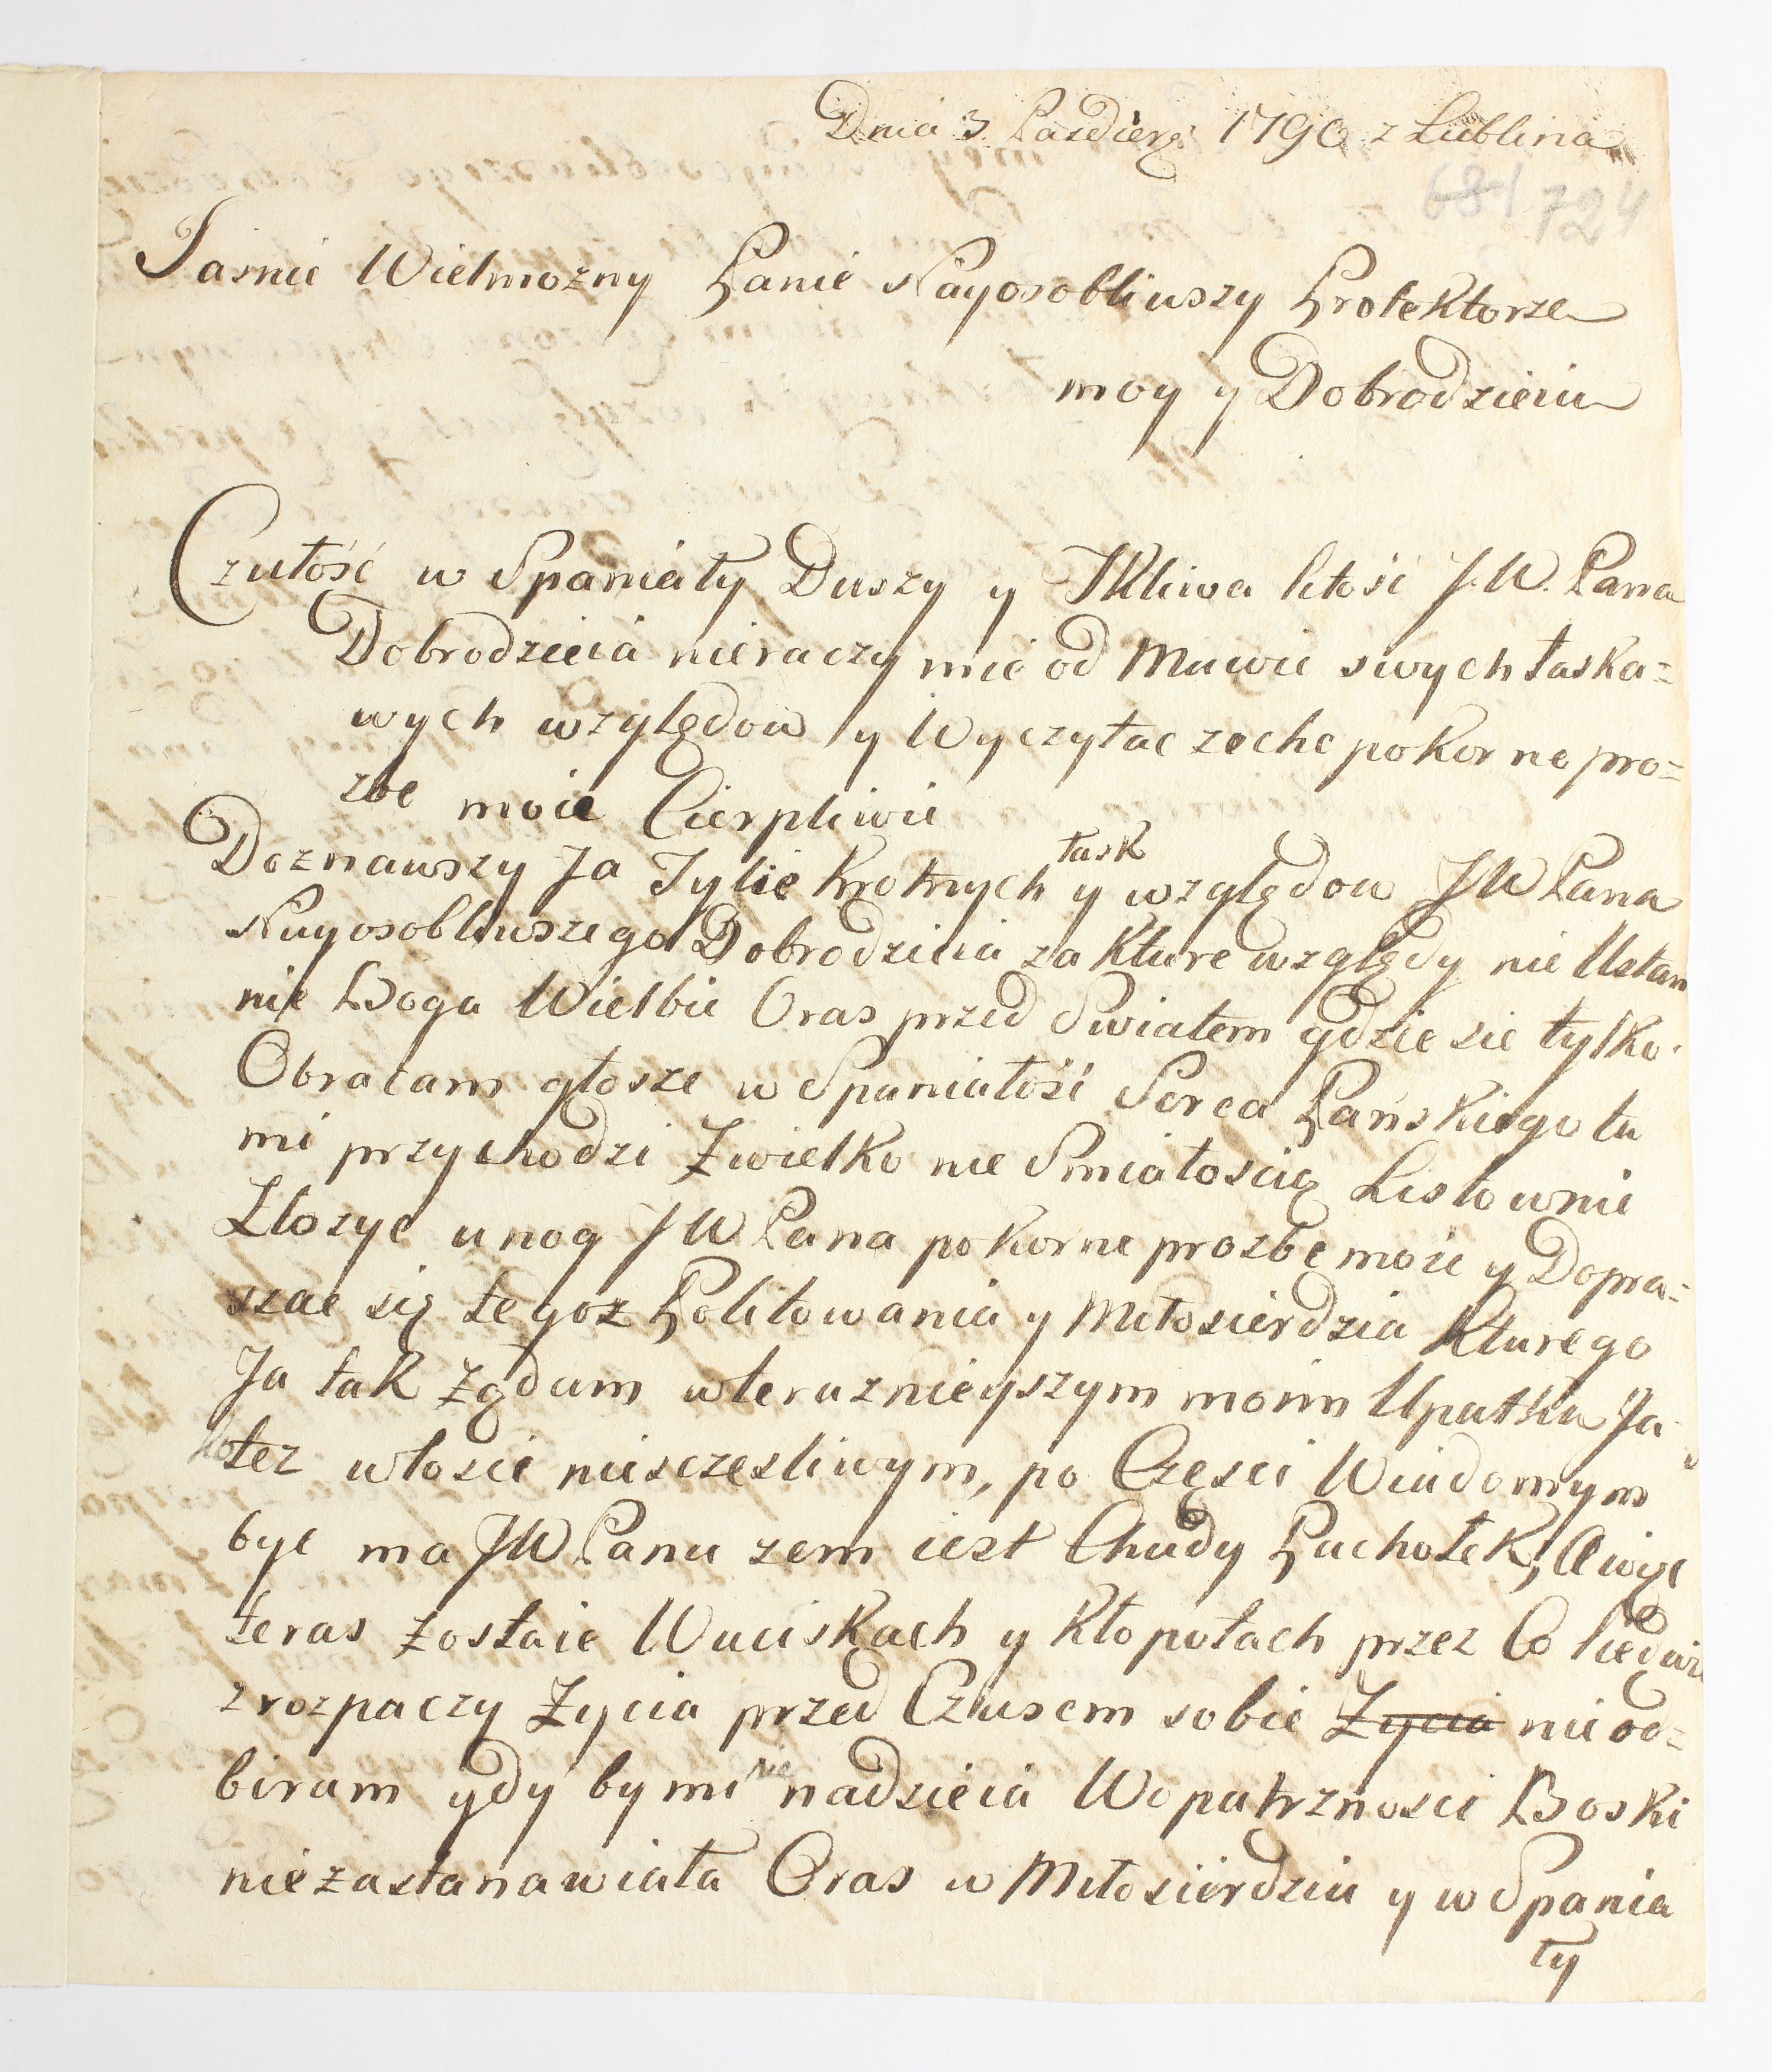 Dnia 3. Pazdierg: 1790 z Lublina
631 724
Jasnie Wielmozny Panie Nayosobliwszy Protektorze
moy y Dobrodzieiu
Czułość w Spaniały Duszy y Tkliwa litość J.W. Pana
Dobrodzieia nieraczy mie od Muwie swych łaska=
wych względow y Wyczytac zechc pokorne pro=
zbe moie Cierpliwie
Doznawszy Ja Tylie krotnych łask y względow JW Pana
Nayosobliwszego Dobrodzieia za kture względy nie Ustan
nie Boga Wielbie Oras przed Swiatem gdzie sie tylko
Obracam głosze w Spaniałość Serca Pańskiego tu
mi przychodzi Zwielko nie Smiałoscią Listownie
Zlozyc unog JW Pana pokorne prozbe moie y Dopra=
szac się tegoz Politowania y Miłosierdzia Kturego
Ja tak Zgdam wteraznieyszym moim Upatku Ja
ko tez włosie niesczesliwym, po Części Wiadomym
byc ma JW Panu zem iest Chudy Pachołek, A więc
teras zostaie Wuciskach y kłopotach przez Co liedwie
zrozpaczy Zycia przed Czasem sobie Zycia nie od=
biram gdy by mi sie nadzieia Wopatrznosci Boski
niezastanawiała Oras w Miłosierdziu y w Spania
ły